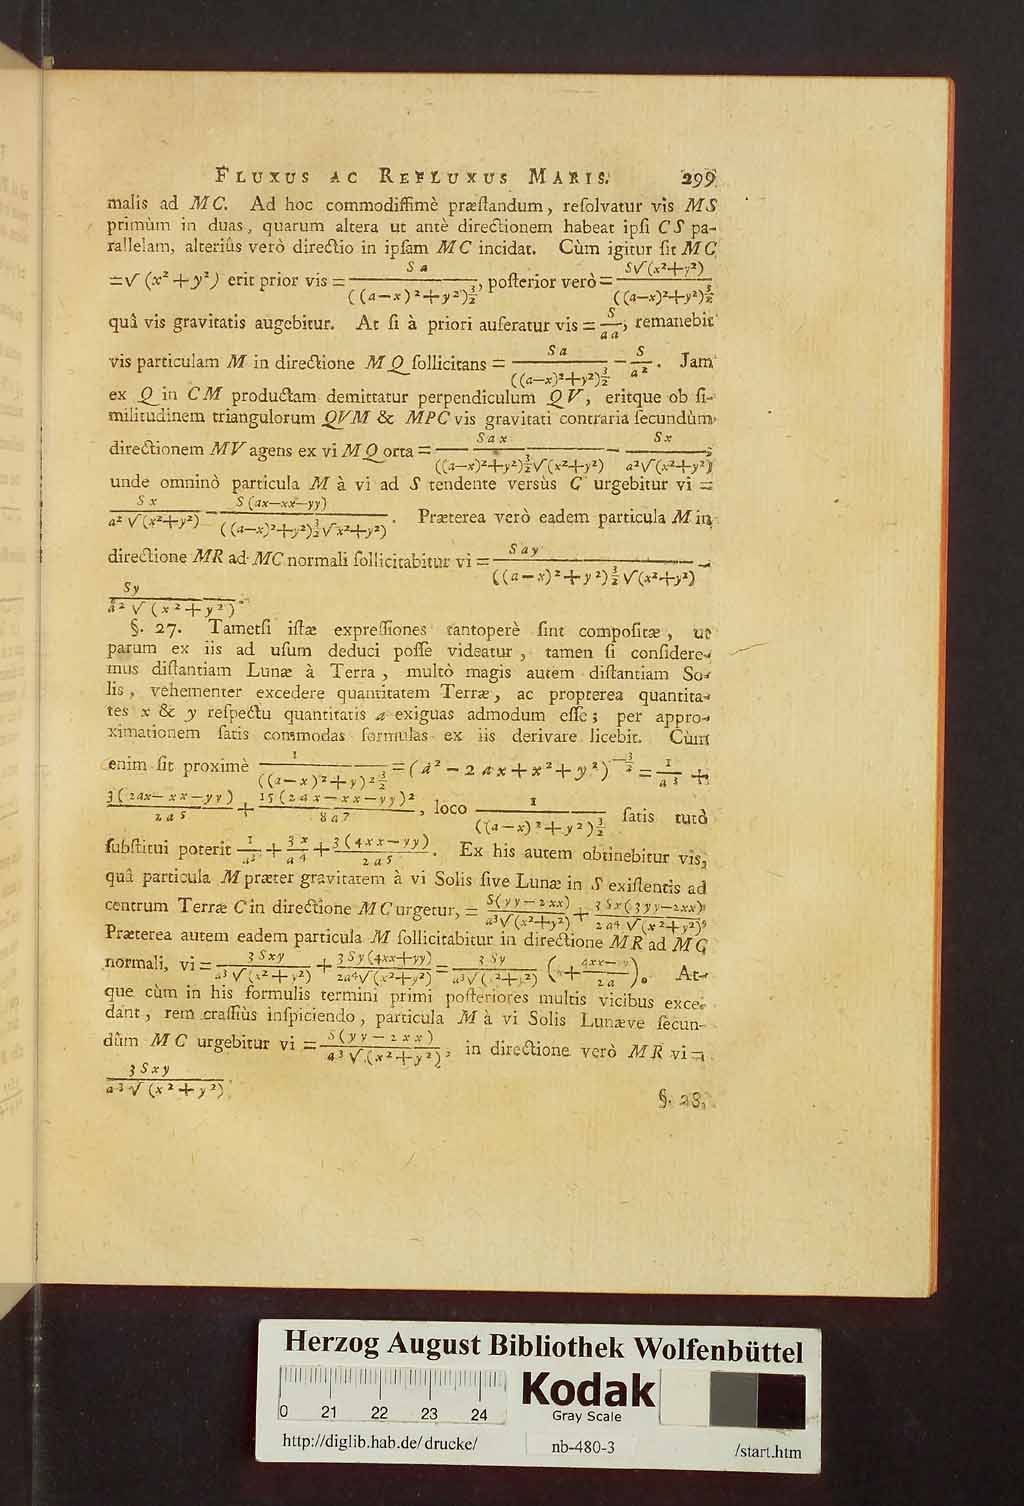 FLUXUS AC REFLUXUS MARIS. 299
malis ad MC. Ad hoc commodiſſimè præſtandum, reſolvatur vis MS
primùm in duas, quarum altera ut antè directionem habeat ipſi CS pa-
rallelam, alteriûs verò directio in ipſam MC incidat. Cùm igitur ſit MC
=√(x²+y²) erit prior vis = Sa / ((a−x)²+y²)^3/2, poſterior verò = S√(x²+y²) / ((a−x)²+y²)^3/2
quâ vis gravitatis augebitur. At ſi à priori auferatur vis = S/aa, remanebit
vis particulam M in directione MQ ſollicitans = Sa / ((a−x)²+y²)^3/2 − S/a². Jam
ex Q in CM productam demittatur perpendiculum QV, eritque ob ſi-
militudinem triangulorum QVM & MPC vis gravitati contraria ſecundùm
directionem MV agens ex vi MQ orta = Sax / ((a−x)²+y²)^3/2 √(x²+y²) − Sx / a²√(x²+y²);
unde omninò particula M à vi ad S tendente versùs C urgebitur vi =
Sx / a²√(x²+y²) − S(ax−xx−yy) / ((a−x)²+y²)^3/2 √x²+y²). Præterea verò eadem particula M in
directione MR ad MC normali ſollicitabitur vi = Say / ((a−x)²+y²)^3/2 √(x²+y²) −
Sy / a²√(x²+y²).
§. 27. Tametſi iſtæ expreſſiones tantoperè ſint compoſitæ, ut
parum ex iis ad uſum deduci poſſe videatur, tamen ſi conſidere-
mus diſtantiam Lunæ à Terra, multò magis autem diſtantiam So-
lis, vehementer excedere quantitatem Terræ, ac propterea quantita-
tes x & y reſpectu quantitatis a exiguas admodum eſſe; per appro-
ximationem ſatis commodas formulas ex iis derivare licebit. Cùm
enim ſit proximè 1 / ((a−x)²+y)²^3/2 = (a²−2ax+x²+y²)^−3/2 = 1/a³ +
3(2ax−xx−yy) / 2a⁵ + 15(2ax−xx−yy)² / 8a⁷, loco 1 / ((a−x)²+y²)^3/2 ſatis tutò
ſubſtitui poterit 1/a³ + 3x/a⁴ + 3(4xx−yy) / 2a⁵. Ex his autem obtinebitur vis,
quâ particula M præter gravitatem à vi Solis ſive Lunæ in S exiſtentis ad
centrum Terræ C in directione MC urgetur, = S(yy−2xx) / a³√(x²+y²) + 3Sx(3yy−2xx) / 2a⁴√(x²+y²)
Præterea autem eadem particula M ſollicitabitur in directione MR ad MC
normali, vi = 3Sxy / a³√(x²+y²) + 3Sy(4xx+yy) / 2a⁴√(x²+y²) = 3Sy / a³√(x²+y²) (x + 4xx−y / 2a). At-
que cùm in his formulis termini primi poſteriores multis vicibus exce-
dant, rem craſſiùs inſpiciendo, particula M à vi Solis Lunæve ſecun-
dùm MC urgebitur vi = S(yy−2xx) / a³√(x²+y²), in directione verò MR vi =
3Sxy / a³√(x²+y²).
§. 28.
Herzog August Bibliothek Wolfenbüttel
Kodak
Gray Scale
0 21 22 23 24
http://diglib.hab.de/drucke/ nb-480-3 /start.htm